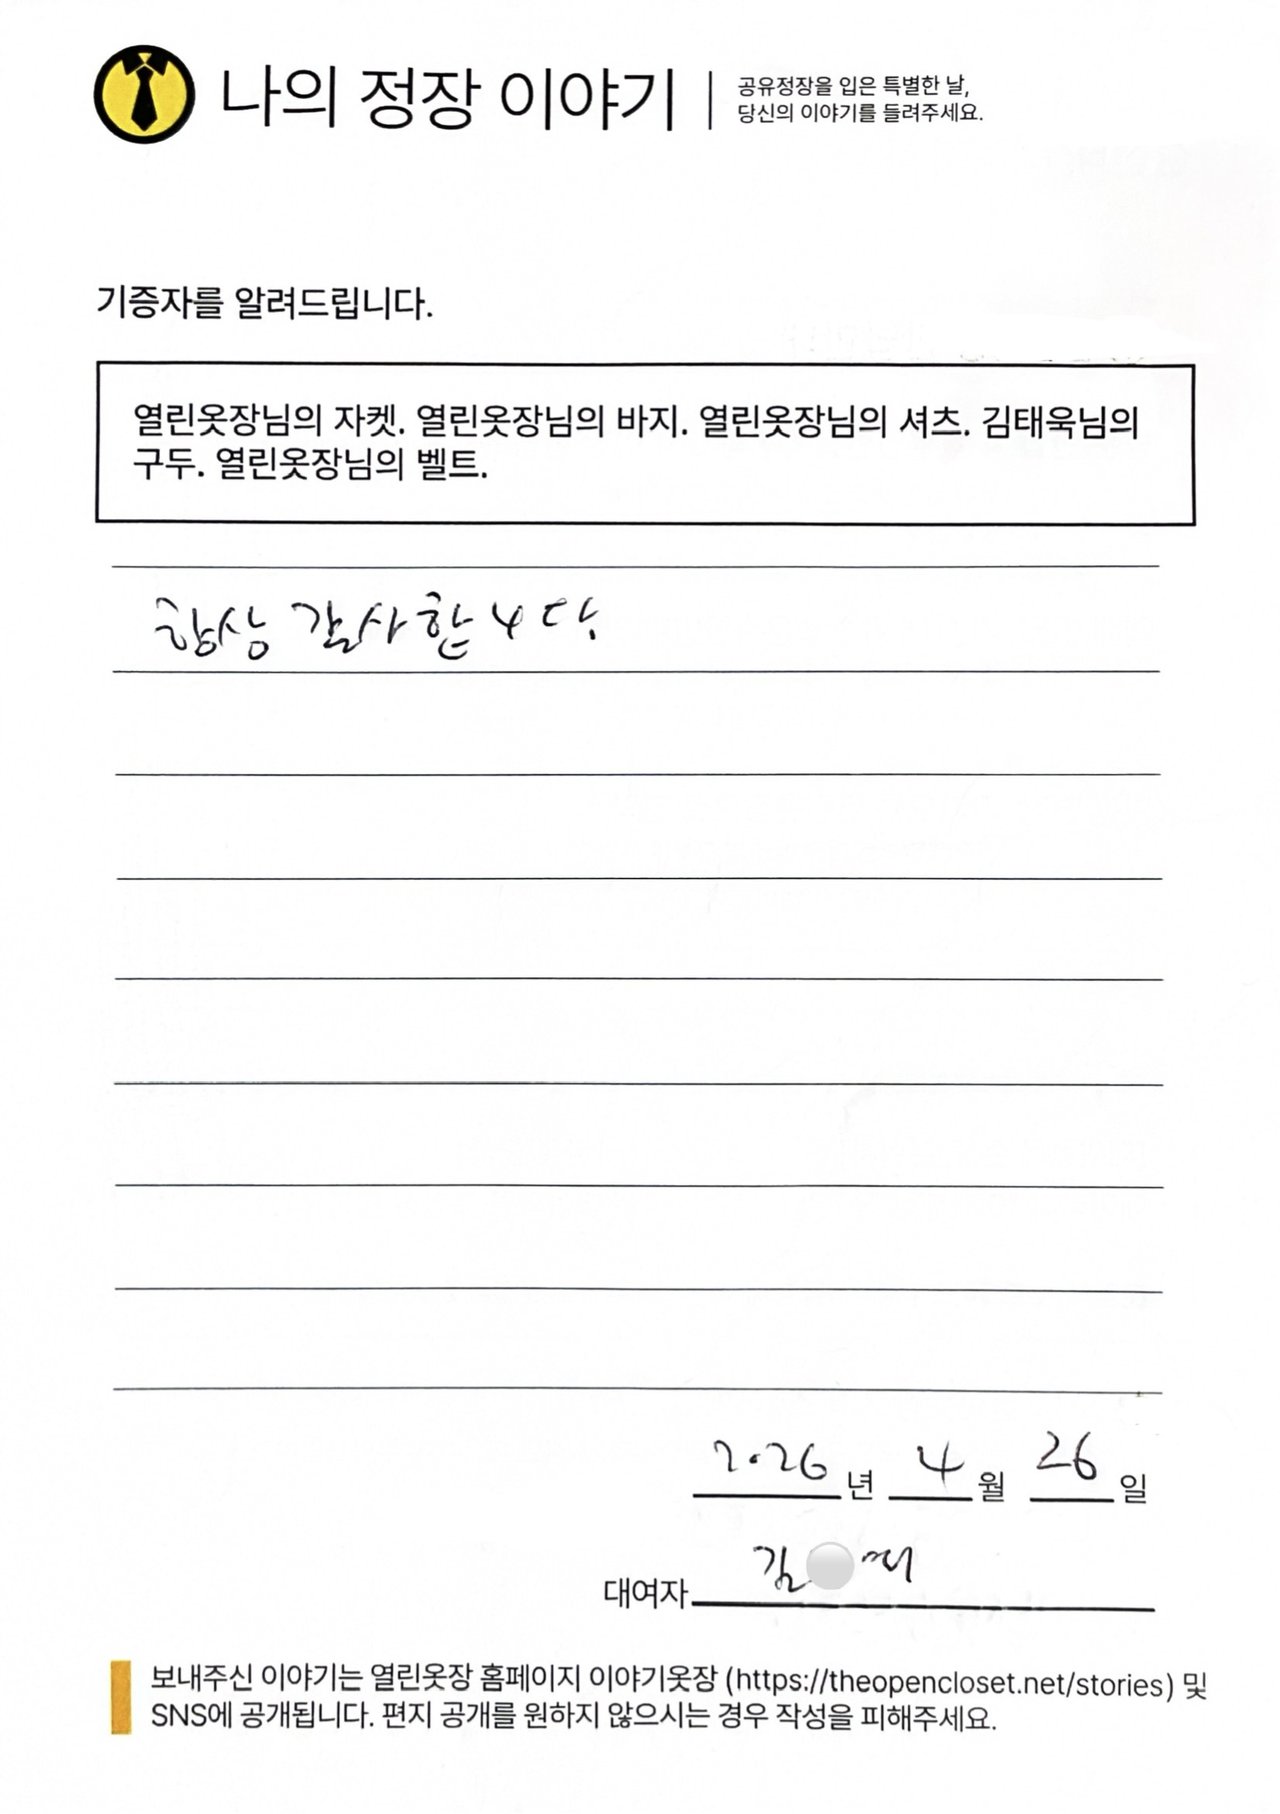 나의 정장 이야기
공유정장을 입은 특별한 날,
당신의 이야기를 들려주세요.
기증자를 알려드립니다.
열린옷장님의 자켓. 열린옷장님의 바지. 열린옷장님의 셔츠. 김태욱님의
구두. 열린옷장님의 벨트.
항상 감사합니다.
2026년 4월 26일
대여자 김
보내주신 이야기는 열린옷장 홈페이지 이야기옷장 (https://theopencloset.net/stories) 및
SNS에 공개됩니다. 편지 공개를 원하지 않으시는 경우 작성을 피해주세요.